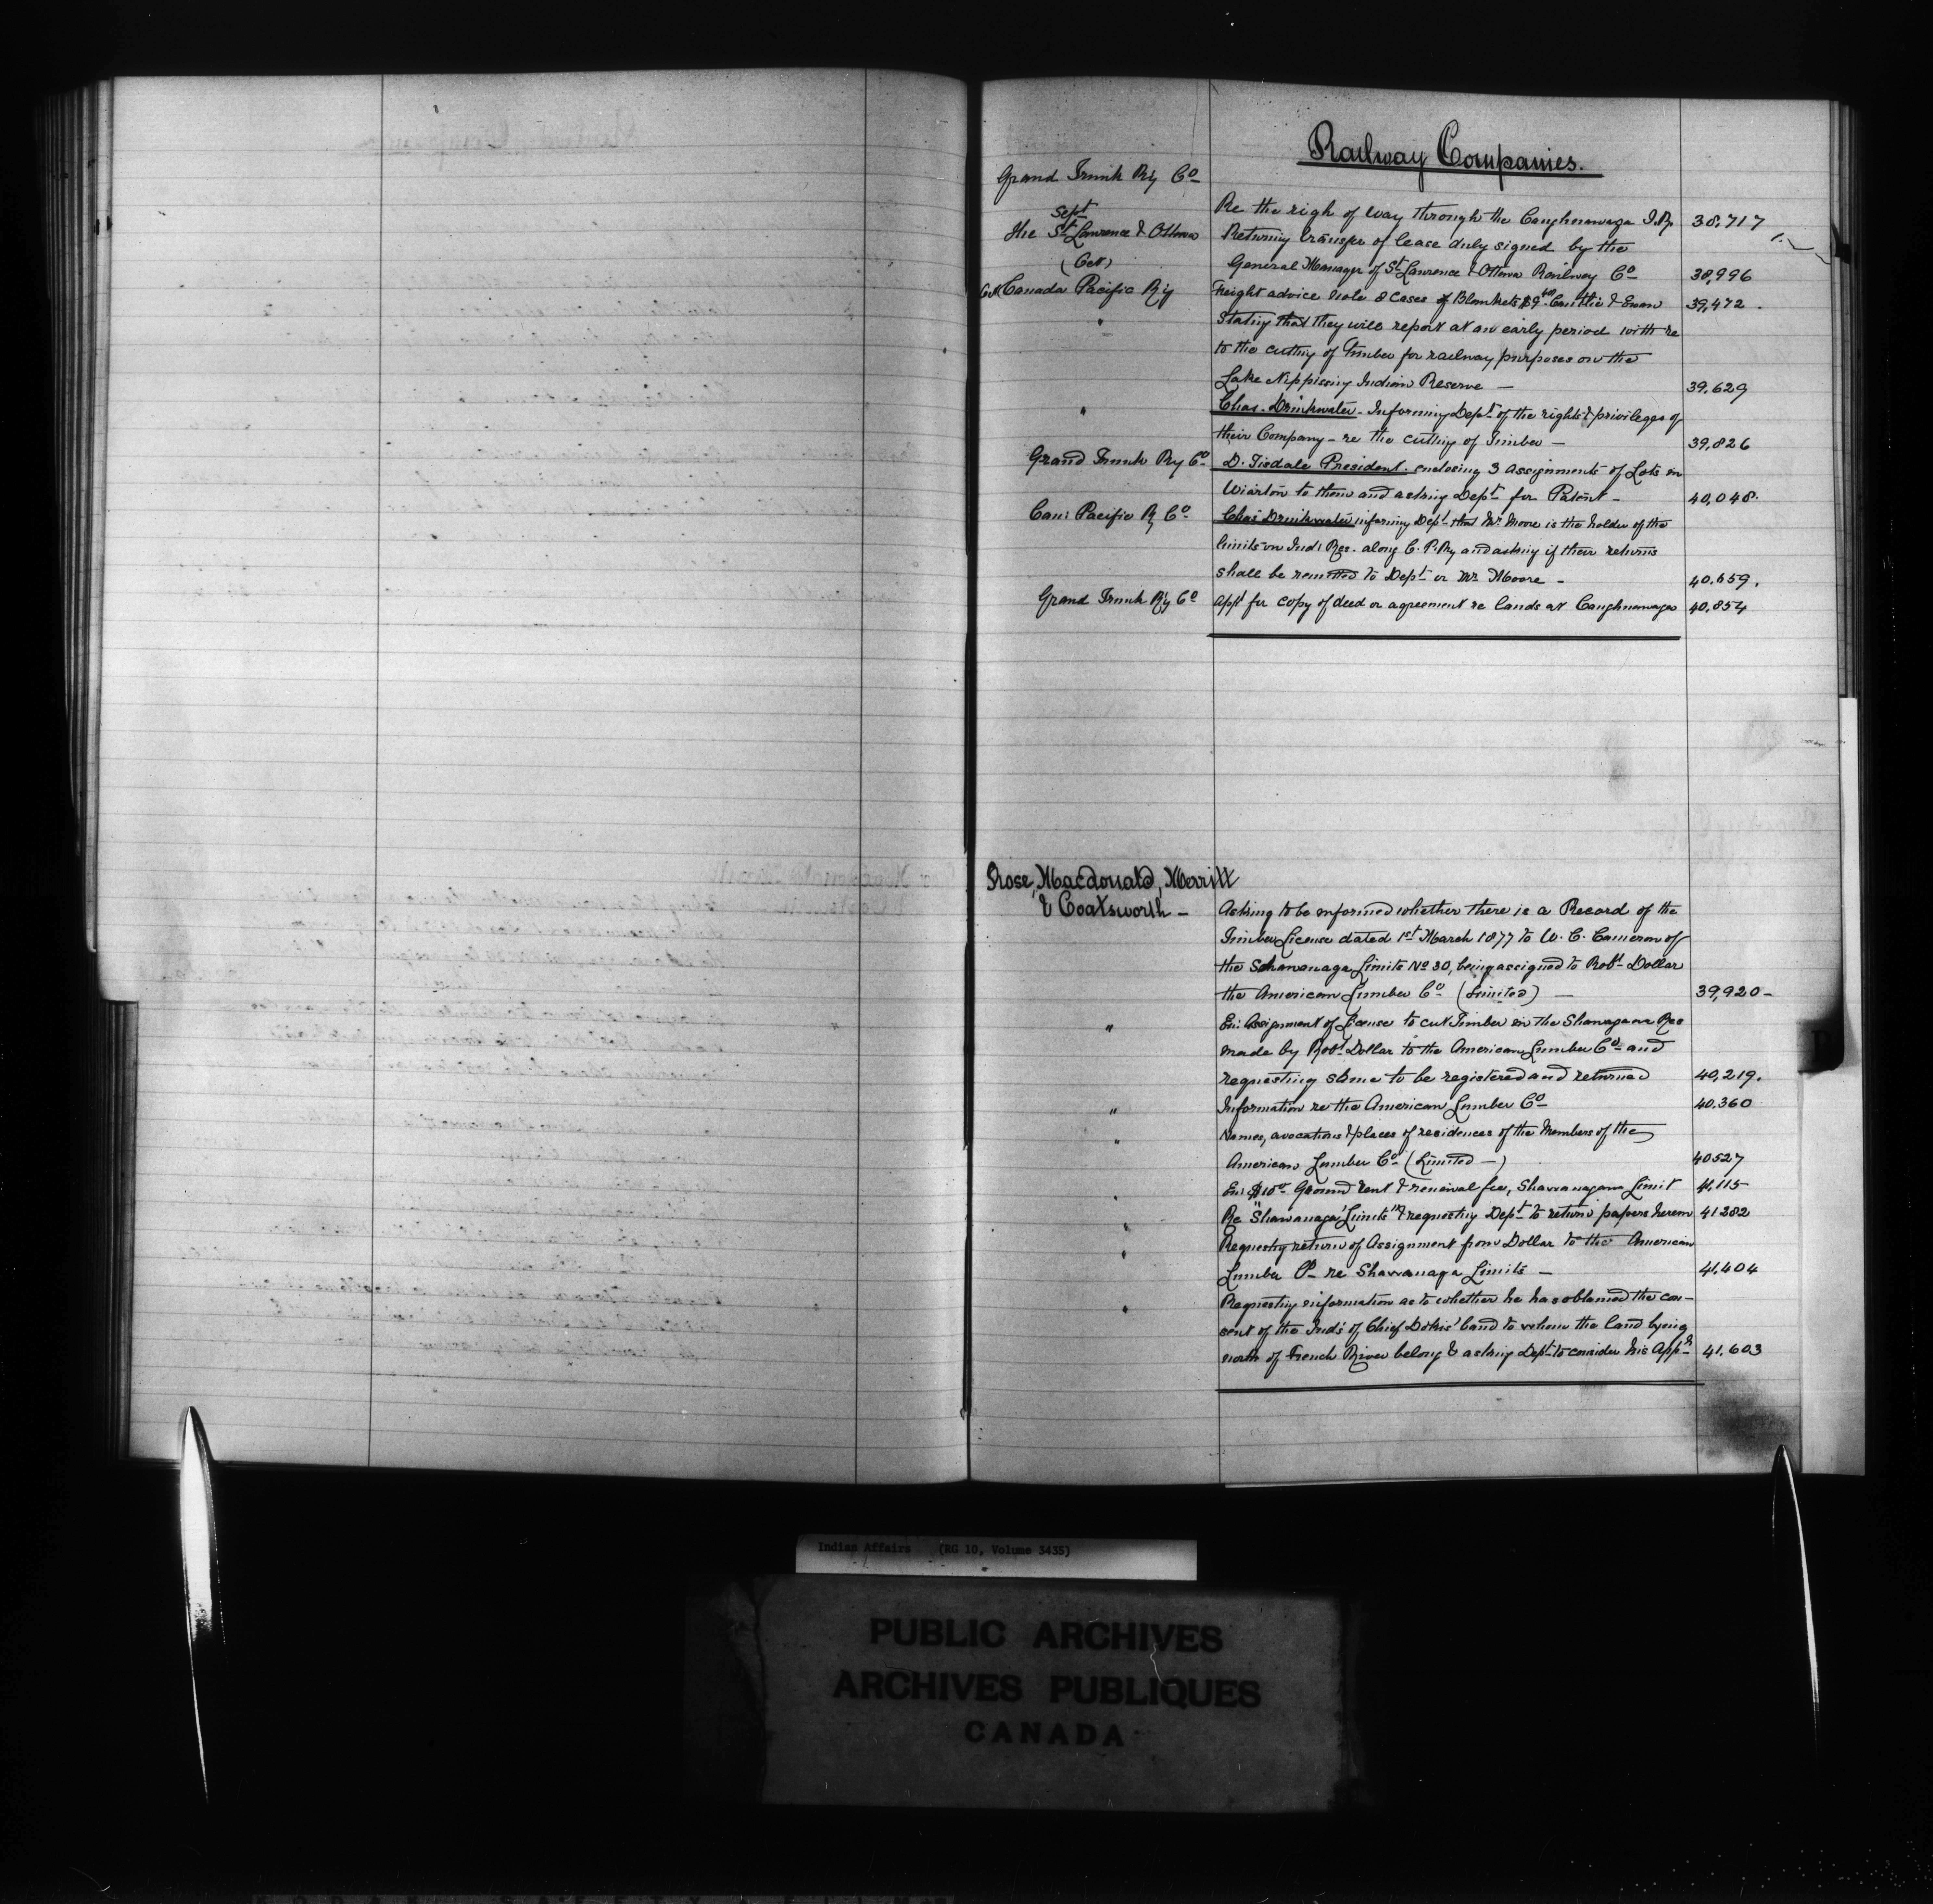 Railway Companies.
Grand Trunk Ry Co
Re the righ of way through the Caughnawaga I.R. 38,717
Sept
The St Lawrence & Ottawa Returning transfer of lease duly signed by the
(Oct) General Manager of St Lawrence & Ottawa Railway Co 38,996
Oct Canada Pacific Ry Freight advice note 8 cases of Blankets $9.40 Cauthie & Ewan 39,472.
" Stating that they will report at an early period with re
to the cutting of Timber for railway purposes on the
Lake Nippissing Indian Reserve — 39.629
" Chas. Drinkwater - Informing Dept of the rights & privileges of
their Company - re the cutting of Timber — 39,826
Grand Trunk Ry Co D. Tisdale President. enclosing 3 assignments of Lots in
Wiarton to them and asking Dept for Patent - 40,048.
Can: Pacific Ry Co Chas Drinkwater informing Dept that Mr. Moore is the holder of the
limits on Ind: Res. along C. P. Ry and asking if their returns
shall be remitted to Dept or Mr Moore - 40.659.
Grand Trunk Ry Co Appn for copy of deed or agreement re lands at Caughnawaga 40,854
Rose, Macdonald, Merritt
& Coatsworth - Asking to be informed whether there is a Record of the
Timber License dated 1st March 1877 to W. C. Cameron of
the Schawanaga Limits No 30, being assigned to Robt Dollar
the American Lumber Co (Limited) — 39,920-
" En: Assignment of License to cut Timber on the Shawanaga Res
made by Robt Dollar to the American Lumber Co and
requesting same to be registered and returned 40,219.
" Information re the American Lumber Co 40.360
" Names, avocations & places of residences of the Members of the
American Lumber Co (Limited —) 40527
" En: $10.00 Ground rent & renewal fee, Shawanaga Limit 41,115
" Re "Shawanaga Limits" & requesting Dept to return papers herein 41282
" Requesting return of Assignment from Dollar to the American
Lumber Co re Shawanaga Limits — 41,404
" Requesting information as to whether he has obtained the con-
sent of the Ind's of Chief Dokis' band to whom the land lying
north of French River belong & asking Dept to consider his Appn 41.603
Indian Affairs (RG 10, Volume 3435)
PUBLIC ARCHIVES
ARCHIVES PUBLIQUES
CANADA